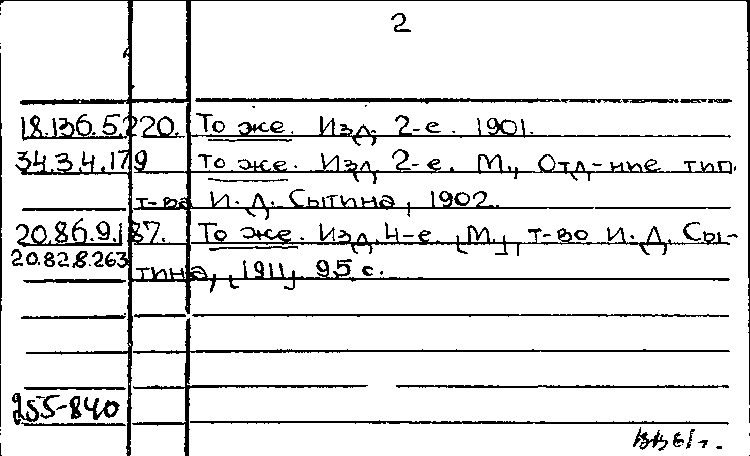 2
18.136.5.220. То же. Изд. 2-е. 1901.
34.3.4.179 То же. Изд. 2-е. М., Отд-ние тип.
т-ва И. Д. Сытина, 1902.
20.86.9.187. То же. Изд. 4-е. [М.], т-во И. Д. Сы-
20.82.8.263 тина, [1911]. 95 с.
255-840